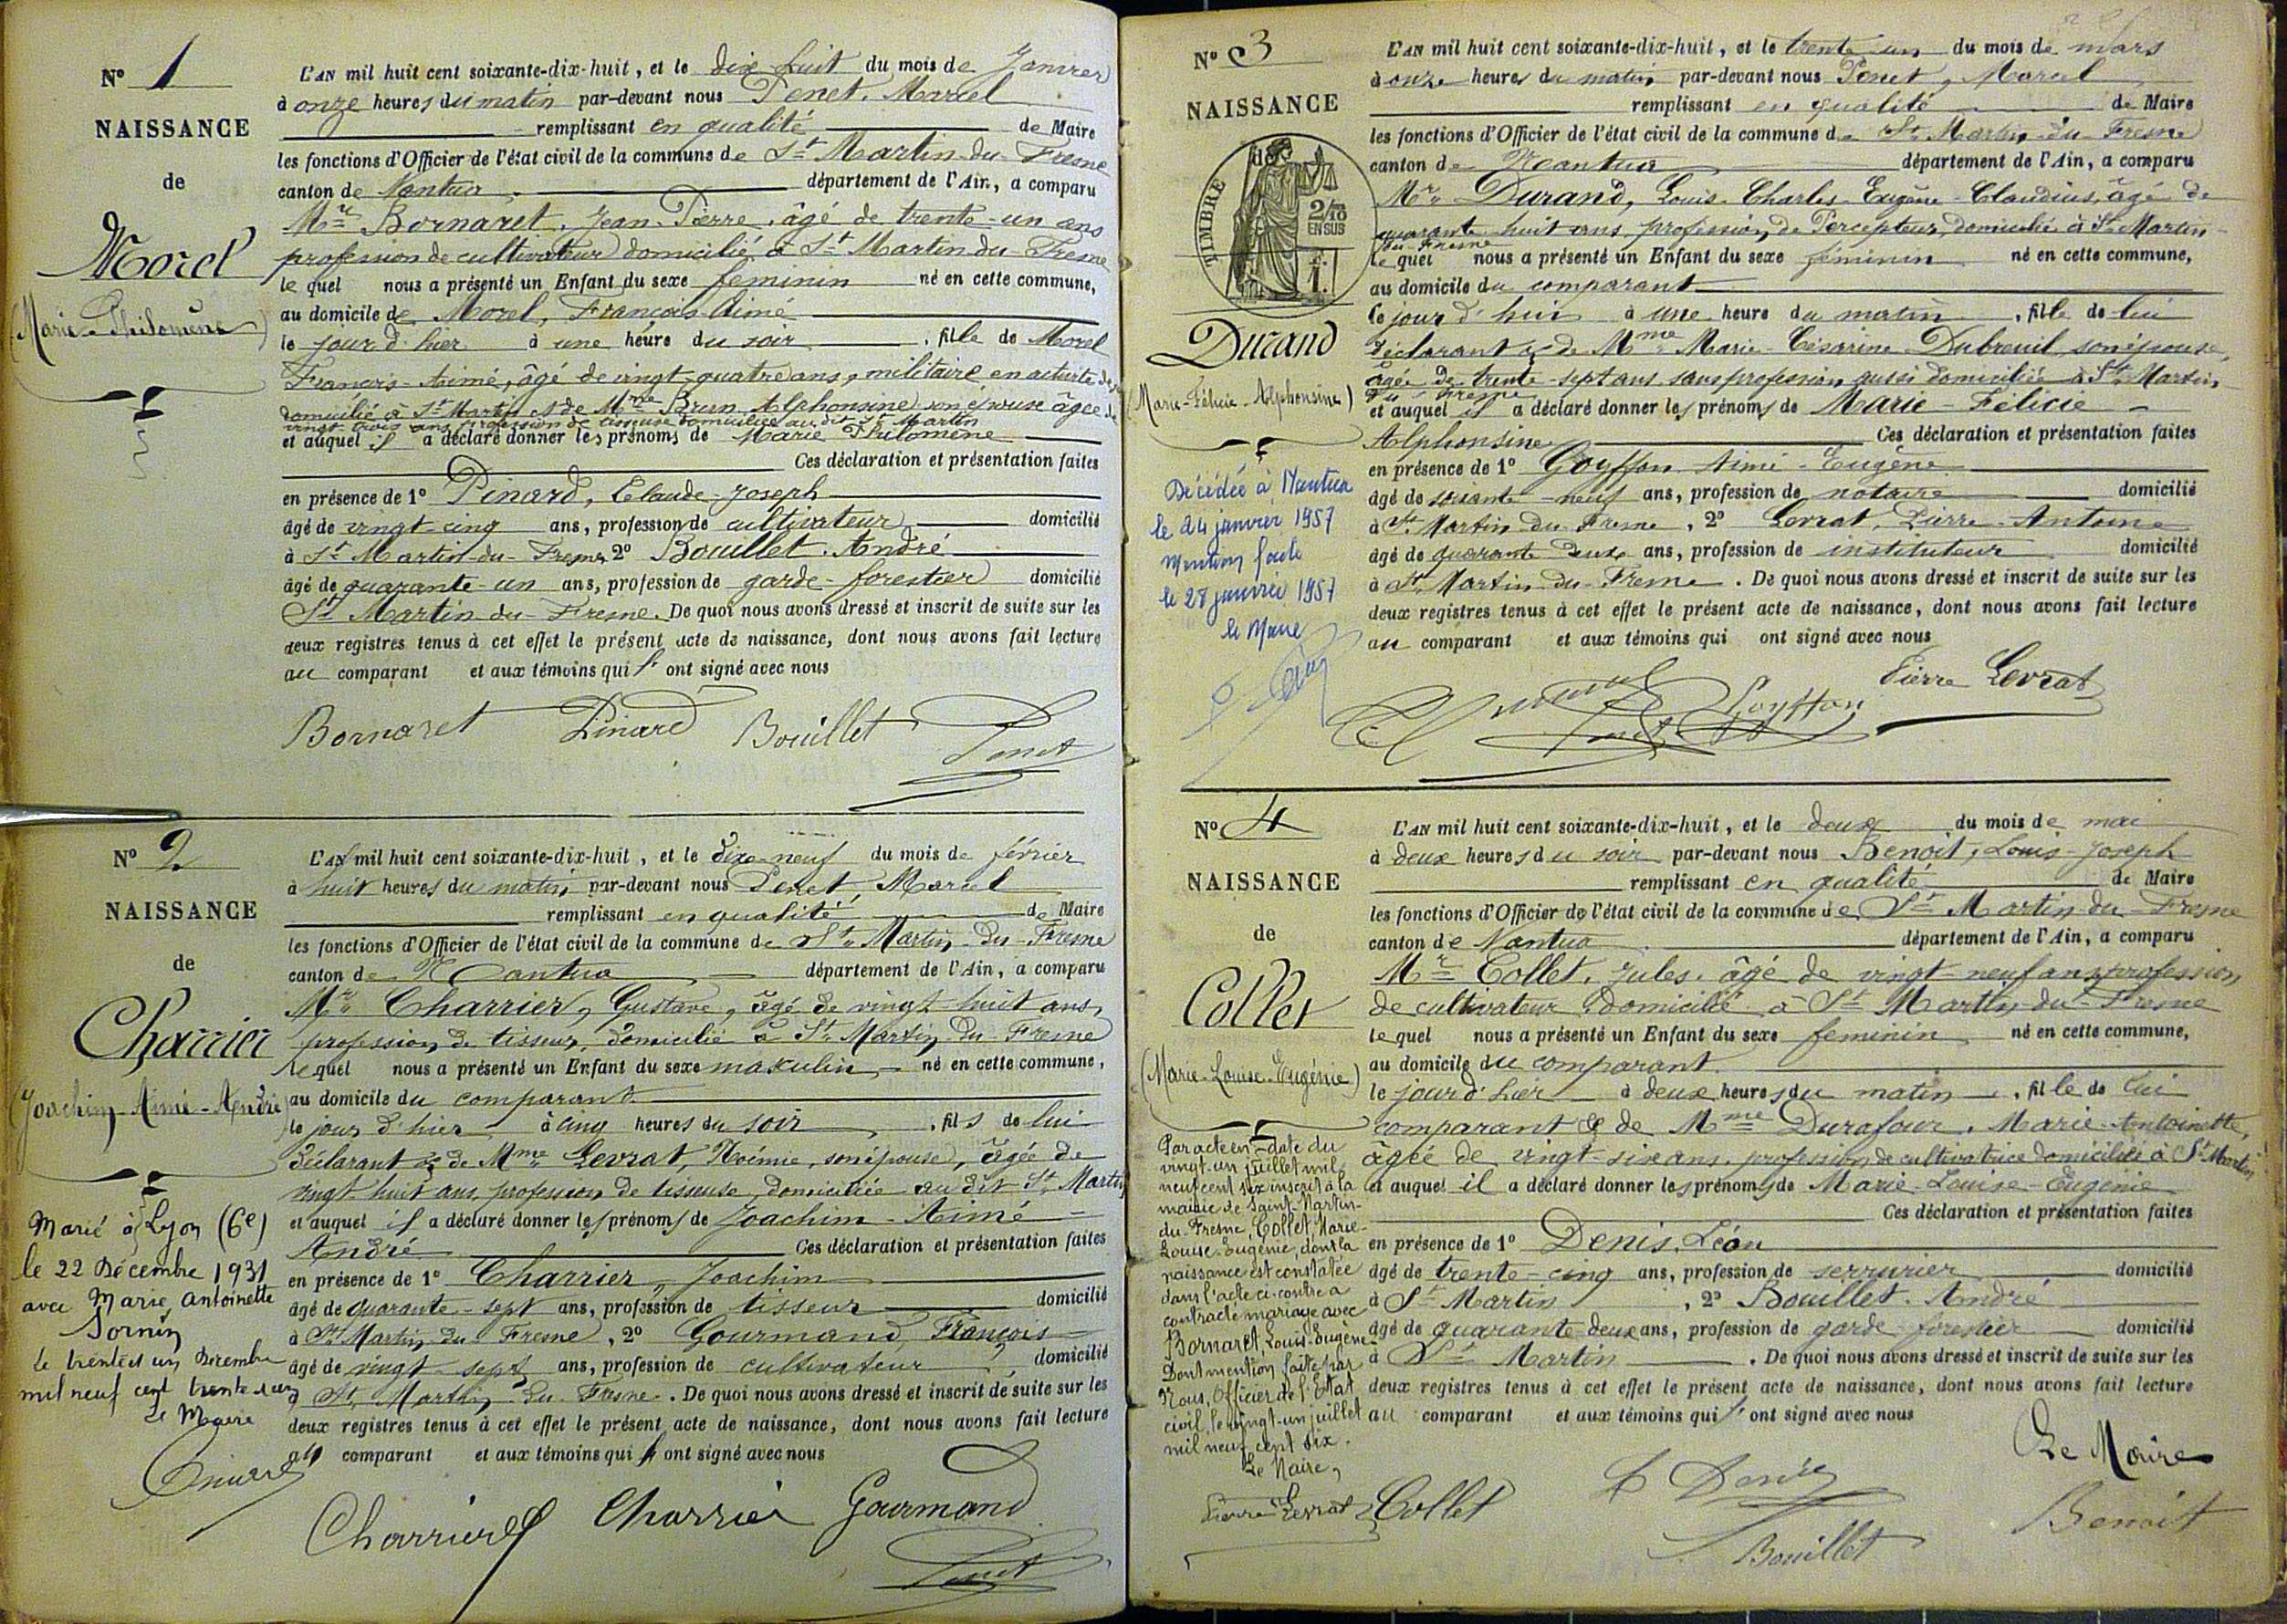 N° 1
NAISSANCE
de
Morel
(Marie-Philomène)
L'AN mil huit cent soixante-dix-huit, et le dix huit du mois de Janvier
à onze heures du matin par-devant nous Penet, Marcel
remplissant en qualité de Maire
les fonctions d'Officier de l'état civil de la commune de St Martin-du-Fresne
canton de Nantua département de l'Ain, a comparu
Mr Bornaret, Jean-Pierre, âgé de trente-un ans
profession de cultivateur domicilié à St Martin-du-Fresne
le quel nous a présenté un Enfant du sexe feminin né en cette commune,
au domicile de Morel, François Aimé
le jour d'hier à une heure du soir, fille de Morel
François-Aimé, âgé de vingt quatre ans, militaire en activité de
domicilié à St Martin & de Mme Brun Alphonsine son épouse âgée de
vingt trois ans profession de tisseuse domiciliée au dit St Martin
et auquel il a déclaré donner les prénoms de Marie Philomène
Ces déclaration et présentation faites
en présence de 1° Pinard, Claude-Joseph
âgé de vingt cinq ans, profession de cultivateur domicilié
à St Martin-du-Fresne 2° Bouillet. André
âgé de quarante-un ans, profession de garde-forestier domicilié
St Martin-du-Fresne. De quoi nous avons dressé et inscrit de suite sur les
deux registres tenus à cet effet le présent acte de naissance, dont nous avons fait lecture
au comparant et aux témoins qui ont signé avec nous
Bornaret Pinard Bouillet Penet
N° 2
NAISSANCE
de
Charrier
(Joachim-Aimé-André)
Marié à Lyon (6e)
le 22 Décembre 1931
avec Marie Antoinette
Sornin
le trente et un Décembre
mil neuf cent trente et un
Le Maire
L'AN mil huit cent soixante-dix-huit, et le dixe-neuf du mois de février
à huit heures du matin par-devant nous Penet, Marcel
remplissant en qualité de Maire
les fonctions d'Officier de l'état civil de la commune de St Martin-du-Fresne
canton de Nantua département de l'Ain, a comparu
Mr Charrier, Gustave, âgé de vingt-huit ans,
profession de tisseur, domicilié à St Martin-du-Fresne
le quel nous a présenté un Enfant du sexe masculin né en cette commune,
au domicile du comparant
le jour d'hier à cinq heures du soir, fils de lui
déclarant & de Mme Levrat, Noémie, son épouse, âgée de
vingt-huit ans, profession de tisseuse, domiciliée au dit St Martin
et auquel il a déclaré donner les prénoms de Joachim-Aimé-
André Ces déclaration et présentation faites
en présence de 1° Charrier, Joachim
âgé de quarante-sept ans, profession de tisseur domicilié
à St Martin du Fresne, 2° Gourmand, François
âgé de vingt-sept ans, profession de cultivateur, domicilié
à St Marthin-du-Fresne. De quoi nous avons dressé et inscrit de suite sur les
deux registres tenus à cet effet le présent acte de naissance, dont nous avons fait lecture
au comparant et aux témoins qui ont signé avec nous
Charrier Charrier Gourmand
Penet
N° 3
NAISSANCE
de
TIMBRE
2/10
EN SUS
Durand
(Marie-Félicie-Alphonsine)
Décédée à Nantua
le 24 janvier 1957
Mention faite
le 28 janvier 1957
le Maire
L'AN mil huit cent soixante-dix-huit, et le trente-un du mois de mars
à onze heures du matin par-devant nous Penet, Marcel
remplissant en qualité de Maire
les fonctions d'Officier de l'état civil de la commune de St Martin-du-Fresne
canton de Nantua département de l'Ain, a comparu
Mr Durand, Louis-Charles-Eugène-Claudius, âgé de
quarante-huit ans, profession de Percepteur, domicilié à St Martin-
du-Fresne
le quel nous a présenté un Enfant du sexe féminin né en cette commune,
au domicile du comparant
le jour d'hui à une heure du matin, fille de lui
déclarant & de Mme Marie-Césarine Dubreuil, son épouse,
âgée de trente-sept ans, sans profession, aussi domiciliée à St Martin
du Fresne
et auquel il a déclaré donner les prénoms de Marie-Félicie-
Alphonsine Ces déclaration et présentation faites
en présence de 1° Goyffon Aimé-Eugène
âgé de soixante-neuf ans, profession de notaire domicilié
à St Martin du Fresne, 2° Levrat, Pierre-Antoine
âgé de quarante deux ans, profession de instituteur domicilié
à St Martin-du-Fresne. De quoi nous avons dressé et inscrit de suite sur les
deux registres tenus à cet effet le présent acte de naissance, dont nous avons fait lecture
au comparant et aux témoins qui ont signé avec nous
Penet Goyffon Pierre Levrat
N° 4
NAISSANCE
de
Collet
(Marie-Louise-Eugénie)
Par acte en date du
vingt-un juillet mil
neuf cent six inscrit à la
mairie de Saint-Martin-
du-Fresne, Collet, Marie-
Louise-Eugénie, dont la
naissance est constatée
dans l'acte ci-contre a
contracté mariage avec
Bornaret, Louis-Eugène
Dont mention faite par
Nous, Officier de l'Etat
civil, le vingt-un juillet
mil neuf cent six.
Le Maire,
Pierre Levrat
L'AN mil huit cent soixante-dix-huit, et le deux du mois de mai
à deux heures du soir par-devant nous Benoit, Louis-Joseph
remplissant en qualité de Maire
les fonctions d'Officier de l'état civil de la commune de St Martin-du-Fresne
canton de Nantua département de l'Ain, a comparu
Mr Collet. Jules. âgé de vingt-neuf ans, profession
de cultivateur domicilié à St Martin-du-Fresne
le quel nous a présenté un Enfant du sexe feminin né en cette commune,
au domicile du comparant
le jour d'hier à deux heures du matin, fille de lui
comparant & de Mme Durafour. Marie-Antoinette,
âgée de vingt-sixe ans, profession de cultivatrice domiciliée à St Martin
et auquel il a déclaré donner les prénoms de Marie-Louise-Eugénie
Ces déclaration et présentation faites
en présence de 1° Denis, Léon
âgé de trente-cinq ans, profession de serrurier domicilié
à St Martin, 2° Bouillet. André
âgé de quarante deux ans, profession de garde forestier domicilié
à St Martin. De quoi nous avons dressé et inscrit de suite sur les
deux registres tenus à cet effet le présent acte de naissance, dont nous avons fait lecture
au comparant et aux témoins qui ont signé avec nous
Le Maire
Collet L Denis
Bouillet Benoit